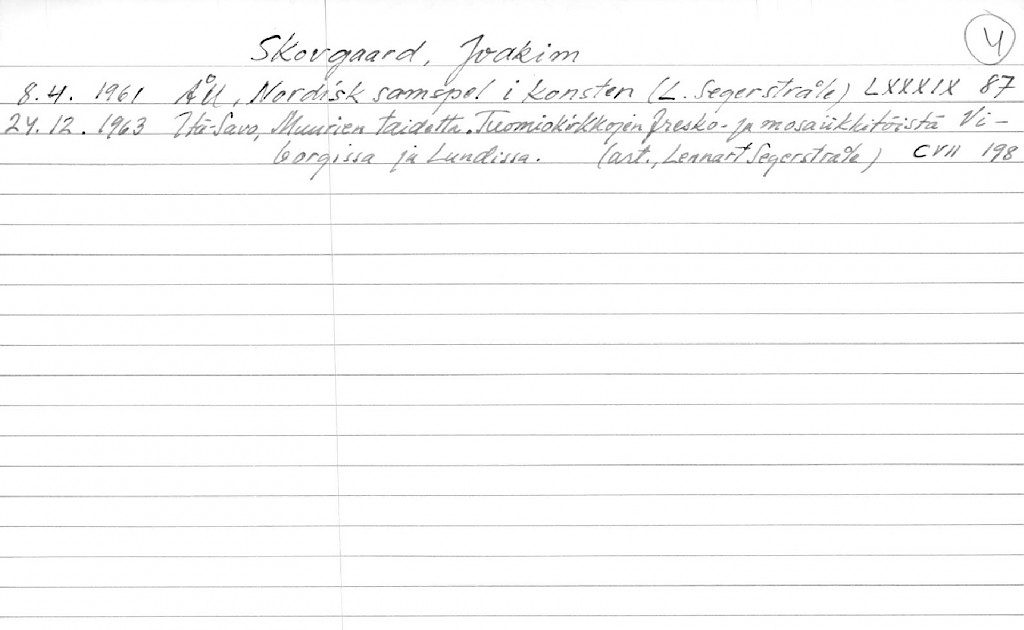 4
Skovgaard, Joakim
8.4. 1961 ÅU, Nordisk samspel i konsten (L. Segerstråle) LXXXIX 87
24.12.1963 Itä-Savo, Muurien taidetta. Tuomiokirkkojen fresko- ja mosaiikkitöistä Vi-
borgissa ja Lundissa. (art., Lennart Segerstråle) CVII 198